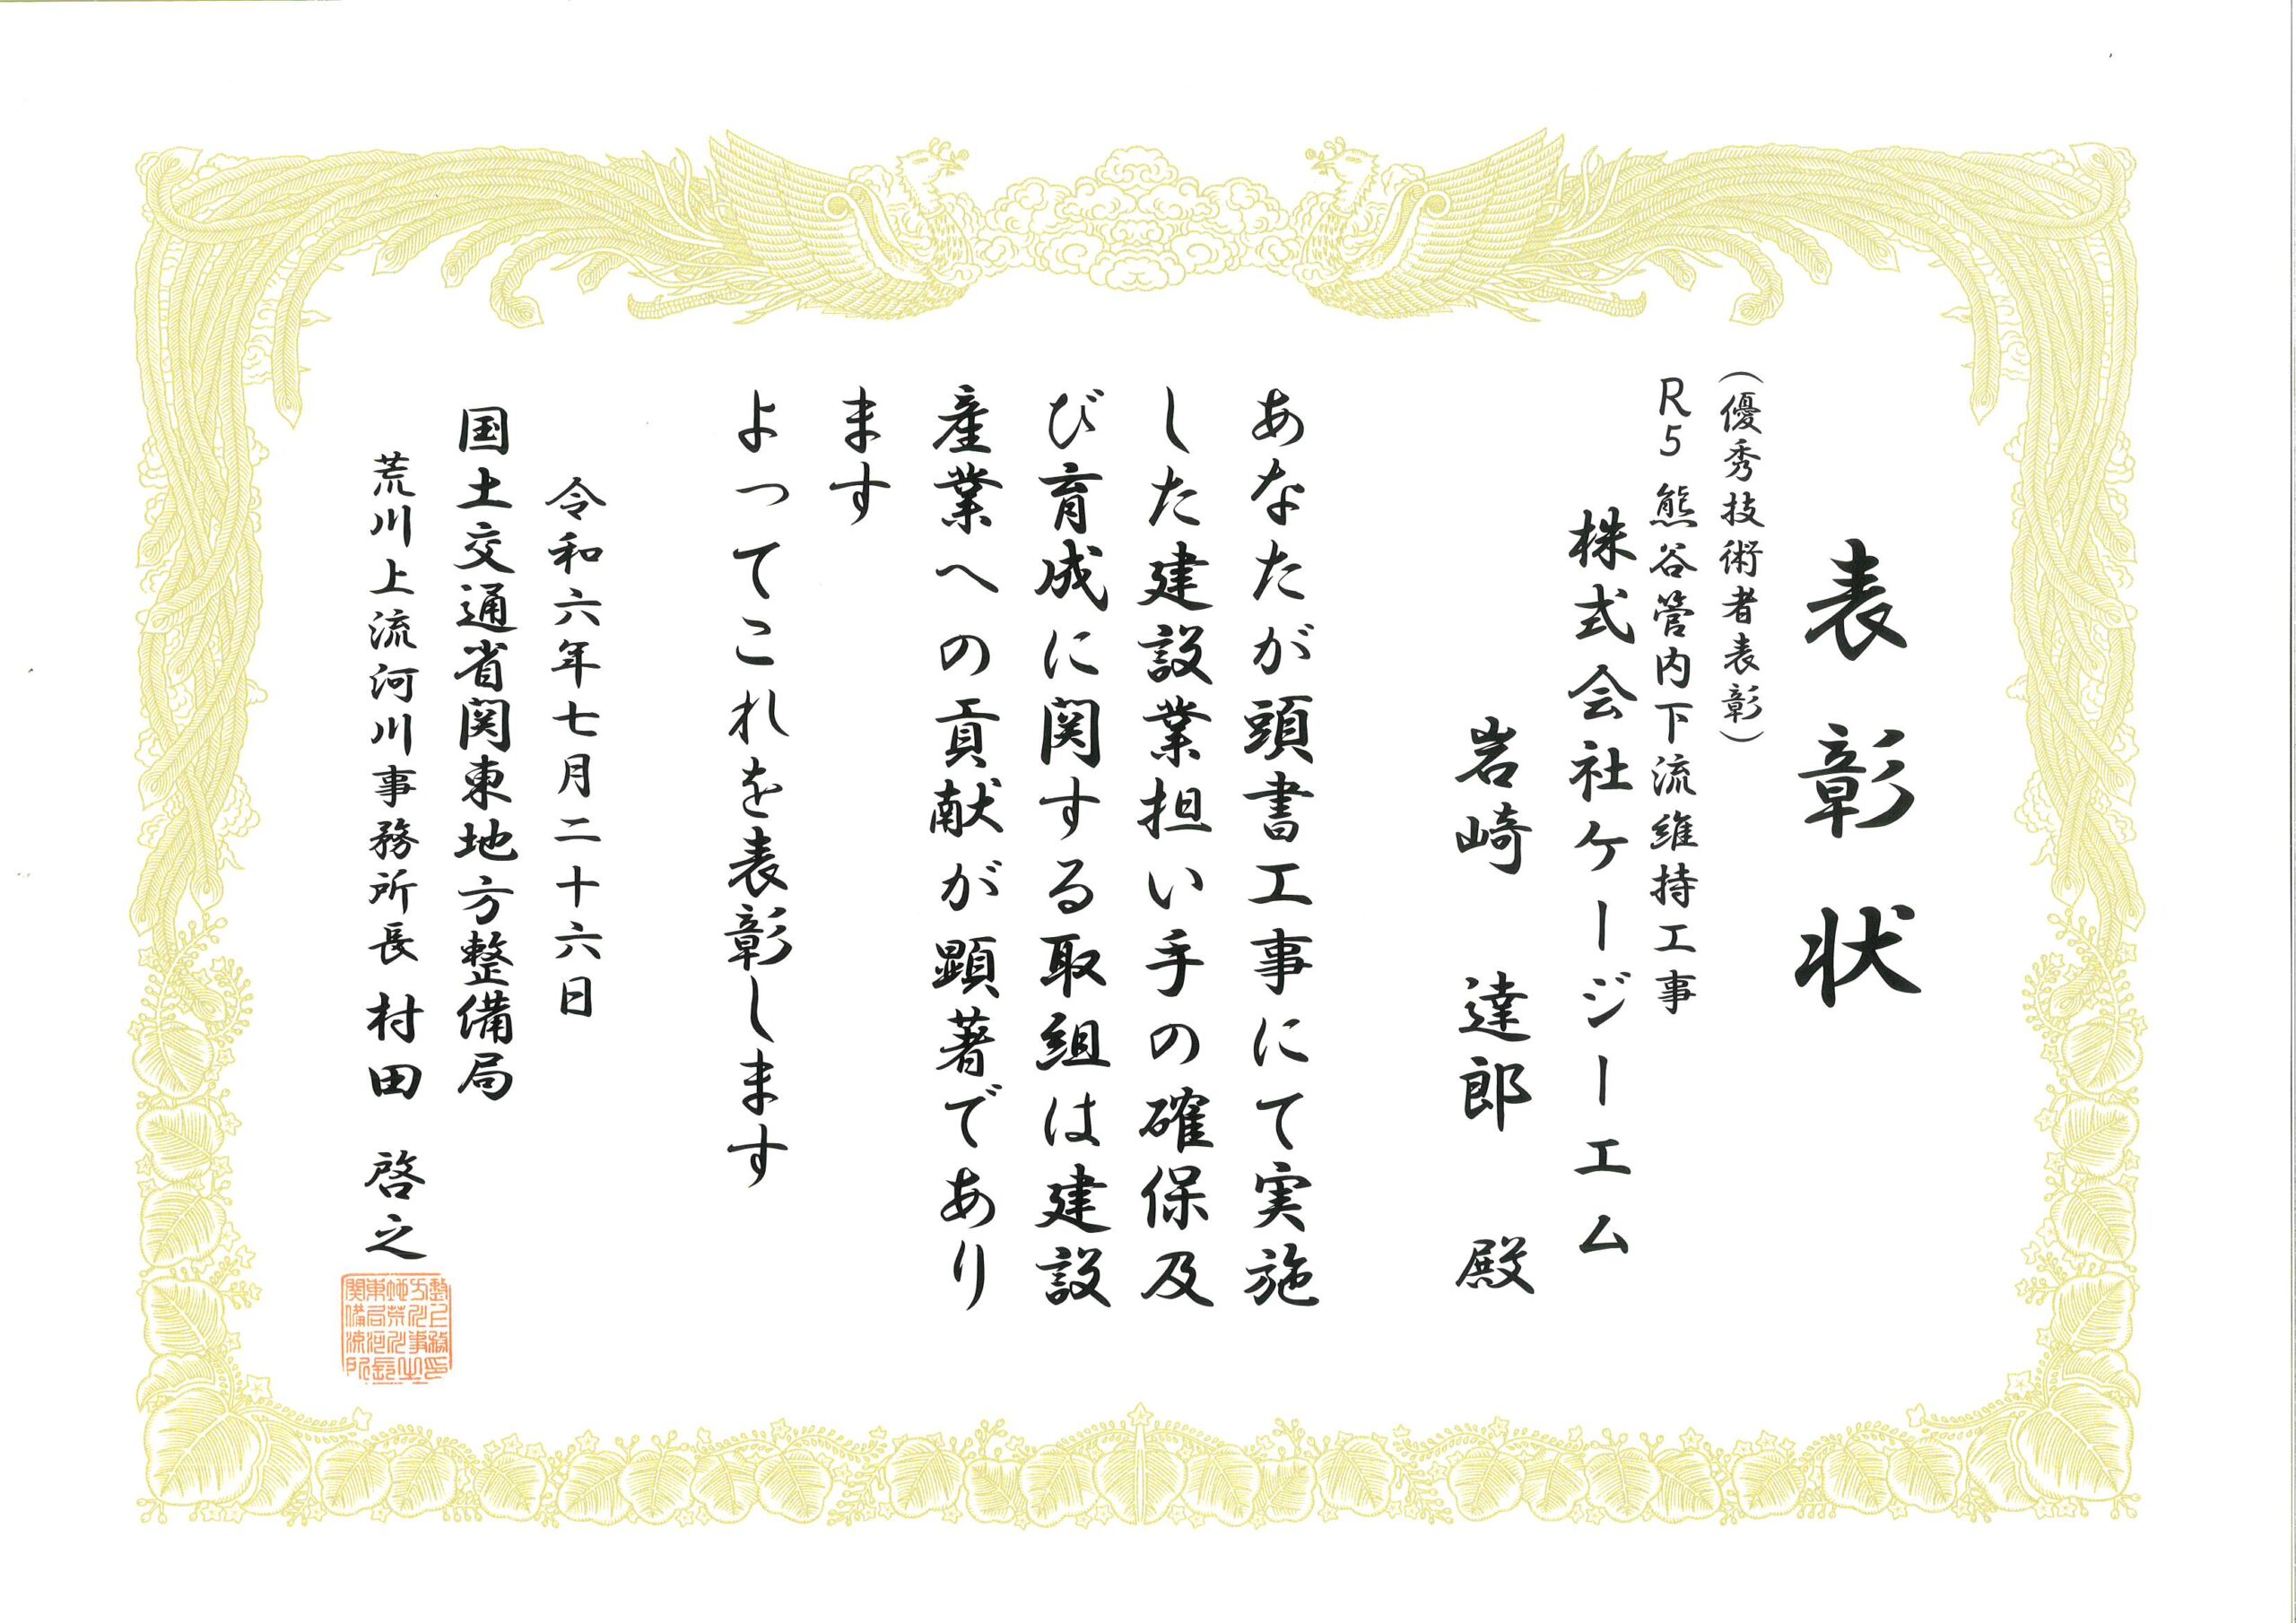 表彰状
（優秀技術者表彰）
R5熊谷管内下流維持工事
株式会社ケージーエム
岩崎 達郎 殿
あなたが頭書工事にて実施
した建設業担い手の確保及
び育成に関する取組は建設
産業への貢献が顕著であり
ます
よってこれを表彰します
令和六年七月二十六日
国土交通省関東地方整備局
荒川上流河川事務所長 村田 啓之